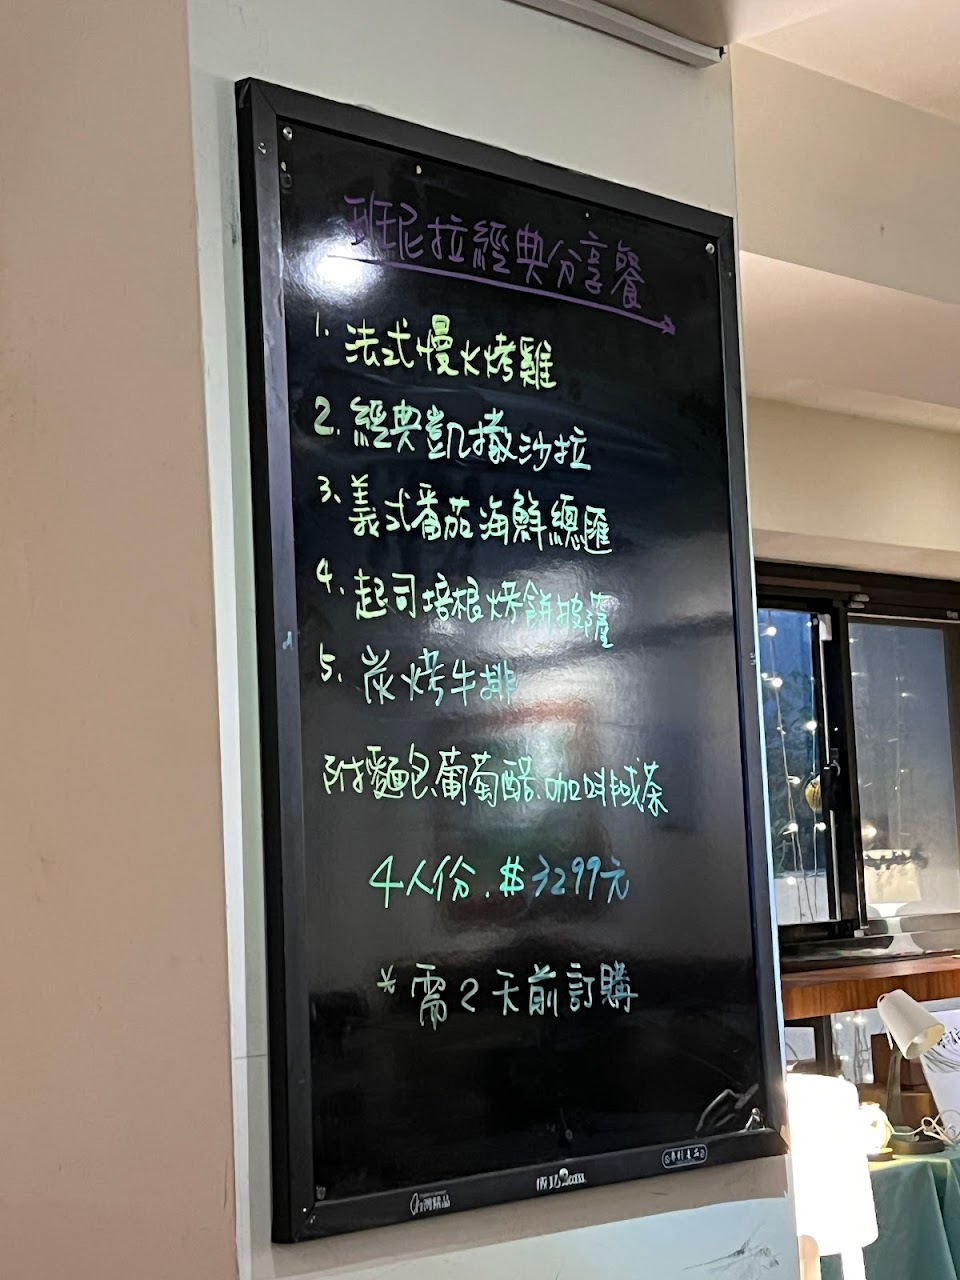 班尼拉經典分享餐
1. 法式慢火烤雞
2. 經典凱撒沙拉
3、義式番茄海鮮總匯
4、起司培根烤餅披薩
5、炭烤牛排
附麵包葡萄醋、咖啡或茶
4人份．$3299元
*需2天前訂購
台灣精品